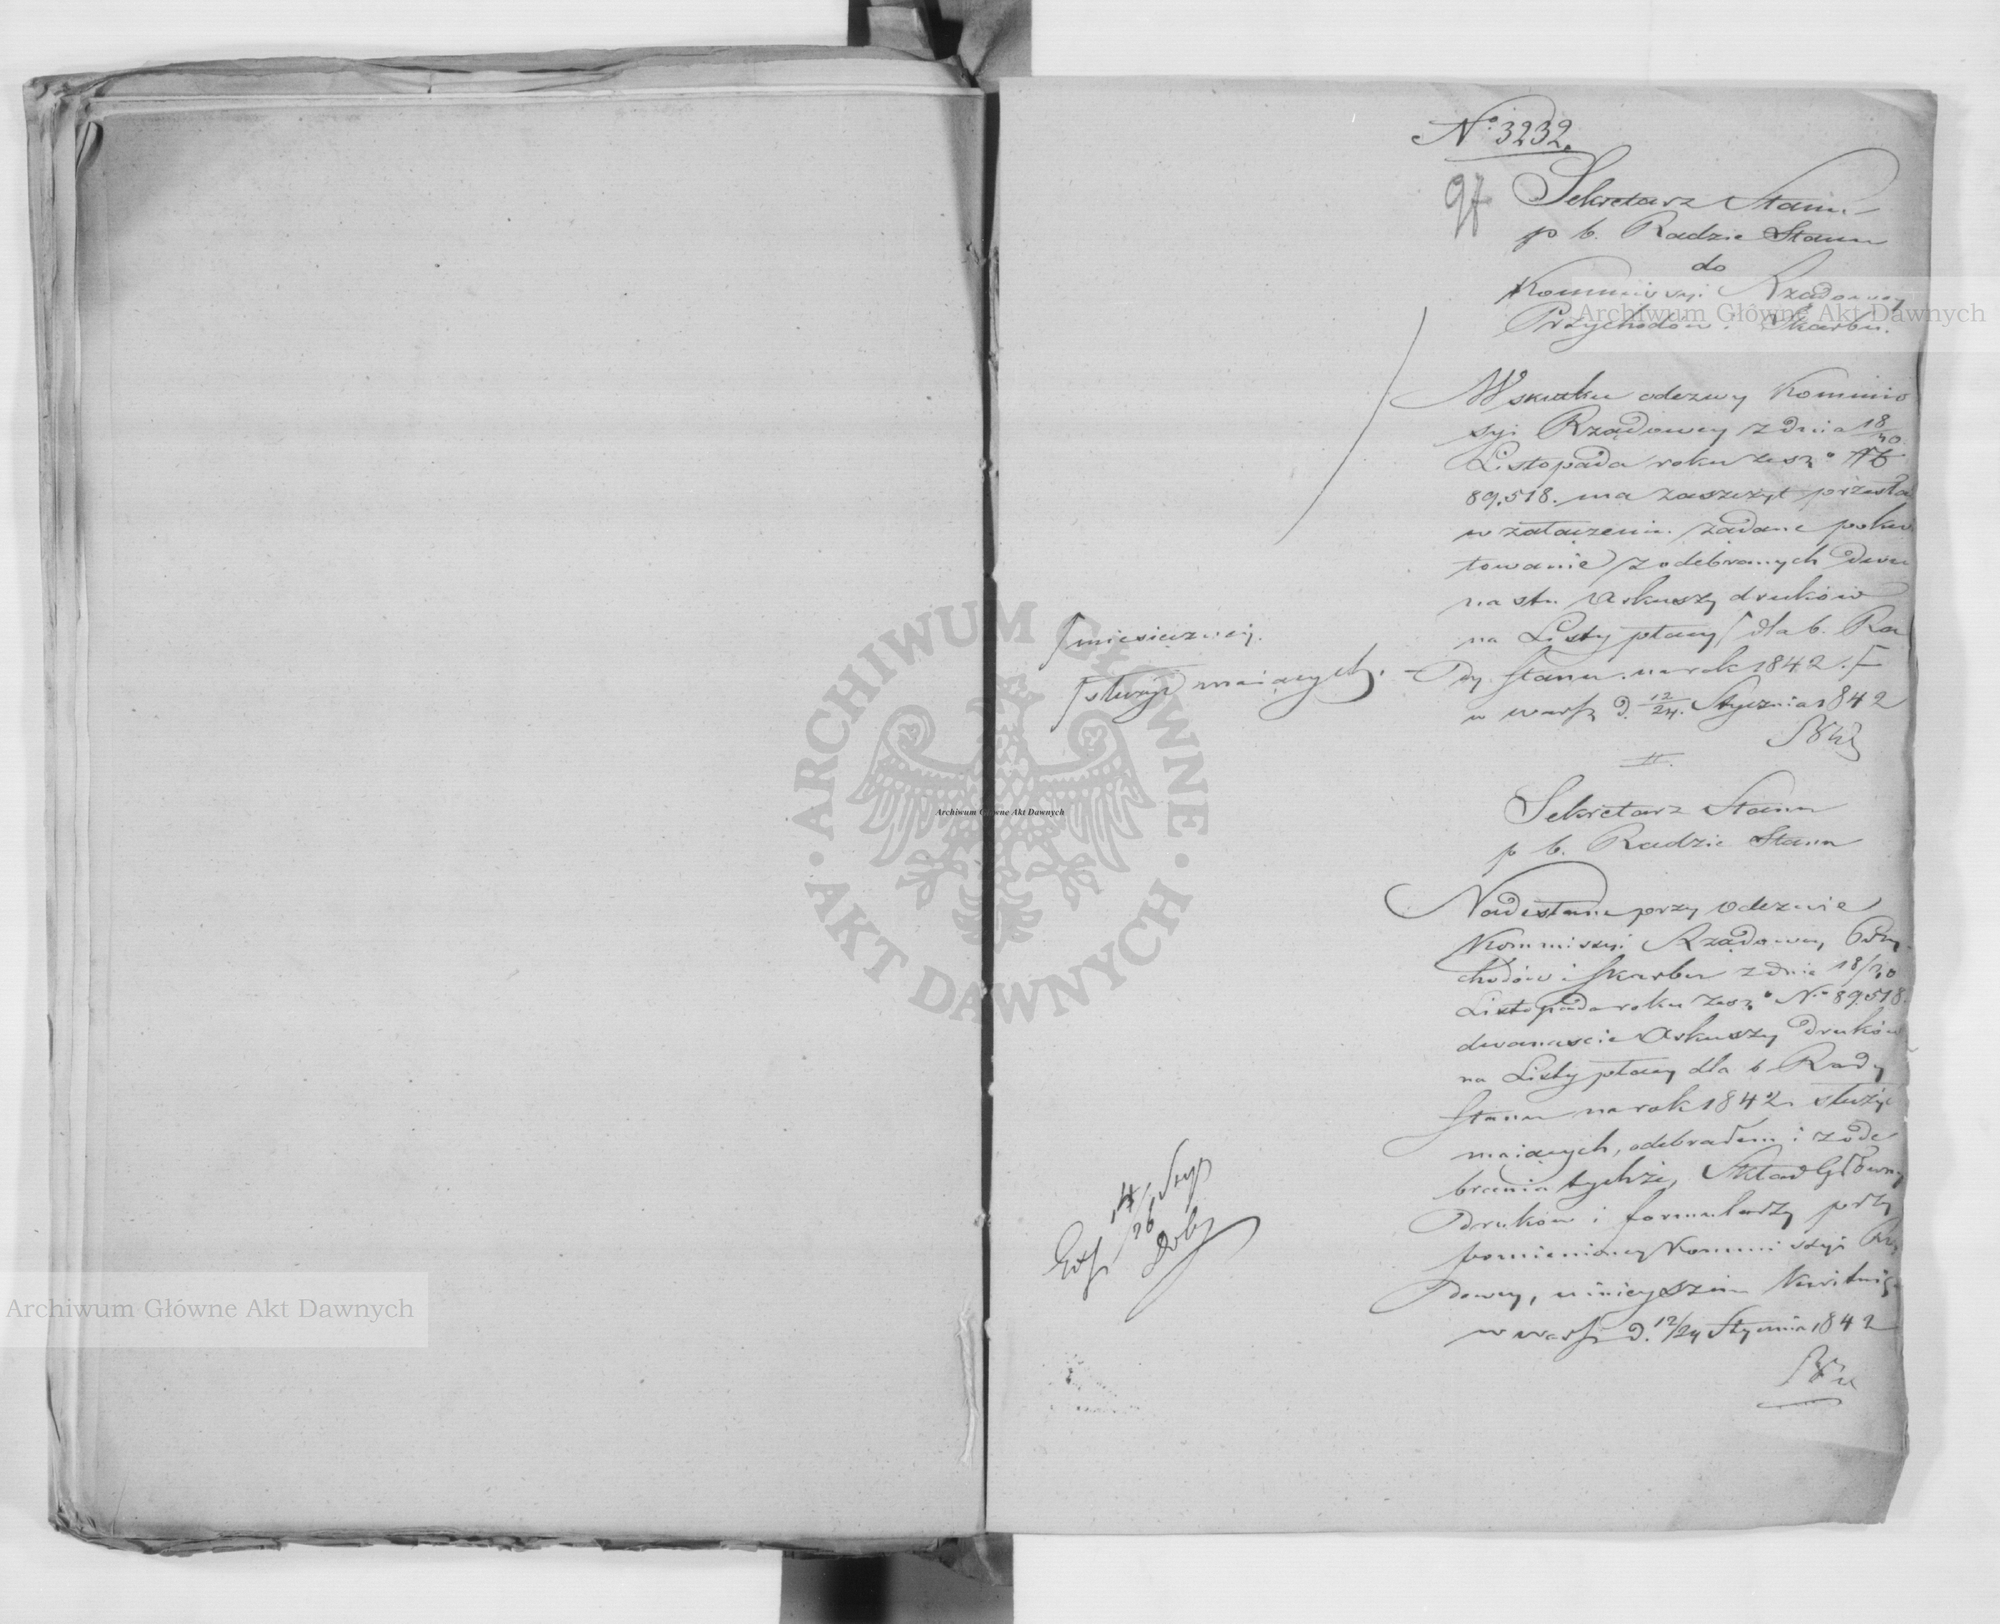 No. 3232.
97
Sekretarz Stanu
p b. Radzie Stanu
do
Kommissyi Rządowey
Przychodów i Skarbu.
W skutku odezwy Kommis
syi Rządowey z dnia 18/30
Listopada roku zesz° Nr
89,518. ma zaszczyt przesłać
w załączeniu żądane pokwi
towanie z odebranych dwu
nastu Arkuszy druków
na Listy płacy ⌈ dla b. Ra
dy Stanu na rok 1842. ⌈
⌈ miesięczney.
⌈ służyć maiących.
w Warsz. d. 12/24. Stycznia 1842
II.
Sekretarz Stanu
p b. Radzie Stanu
Nadesłane przy odezwie
Kommissyi Rządowey Przy
chodów i Skarbu z dnia 18/30
Listopada roku zesz° No 89.518.
dwanaście Arkuszy druków
na Listy płacy dla b Rady
Stanu na rok 1842 służyć
maiących, odebrałem i z ode
brania tychże, Skład Główny
druków i formularzy przy
pomienioney Kommissyi Rzą
dowey, ninieyszem kwituię
w Warsz d. 12/24 Stycznia 1842
14/26 Stycz
Archiwum Główne Akt Dawnych
Archiwum Główne Akt Dawnych
Archiwum Główne Akt Dawnych
ARCHIWUM GŁÓWNE · AKT DAWNYCH ·